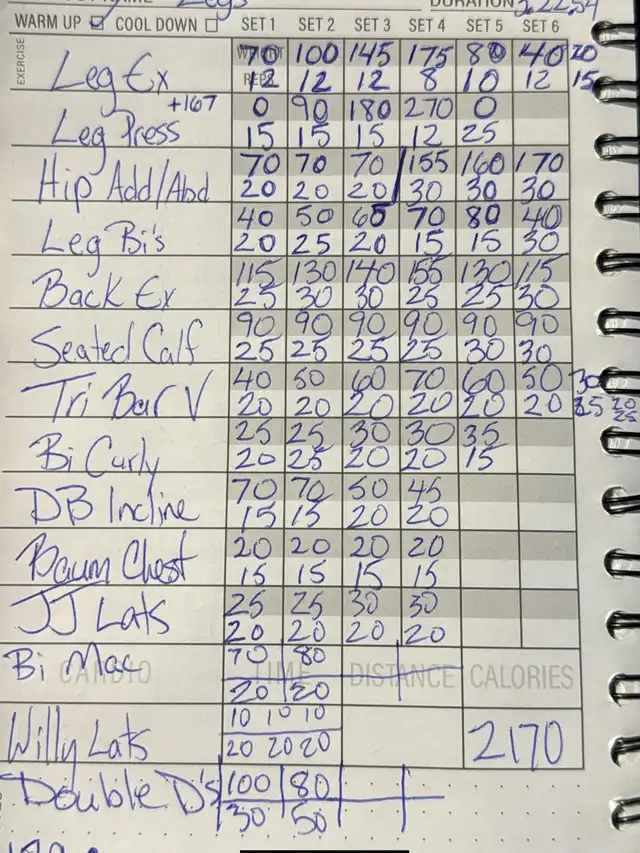 Legs DURATION 3:22:54
WARM UP ☑ COOL DOWN ☐ SET 1 SET 2 SET 3 SET 4 SET 5 SET 6
EXERCISE
Leg Ex 70 100 145 175 80 40 20
REPS 12 12 12 8 10 12 15
+167
Leg Press 0 90 180 270 0
15 15 15 12 25
Hip Add/Abd 70 70 70 155 160 170
20 20 20 30 30 30
Leg Bi's 40 50 60 70 80 40
20 25 20 15 15 30
Back Ex 115 130 140 155 130 115
25 30 30 25 25 30
Seated Calf 90 90 90 90 90 90
25 25 25 25 30 30
Tri Bar V 40 50 60 70 60 50 30
20 20 20 20 20 20 25 20
25
Bi Curly 25 25 30 30 35
20 25 20 20 15
DB Incline 70 70 50 45
15 15 20 20
Baum Chest 20 20 20 20
15 15 15 15
JJ Lats 25 25 30 30
20 20 20 20
Bi Mac 70 80
CARDIO TIME DISTANCE CALORIES
20 20
Willy Lats 10 10 10
20 20 20 2170
Double D's 100 80
30 50